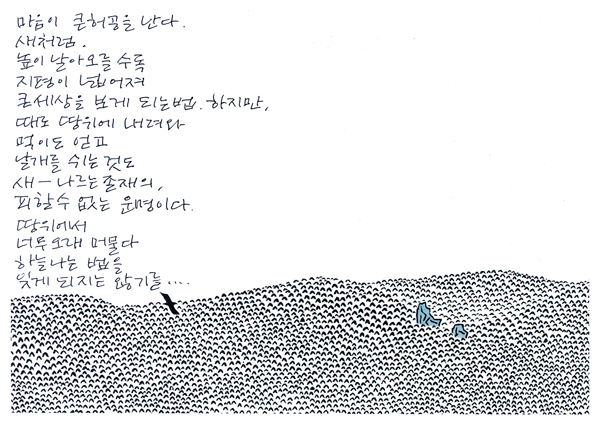 마음이 큰허공을 난다.
새처럼.
높이 날아오를 수록
지평이 넓어져
큰세상을 보게 되는법. 하지만,
때로 땅위에 내려와
먹이도 얻고
날개를 쉬는 것도
새 — 나르는 존재의,
피할수 없는 운명이다.
땅위에서
너무오래 머물다
하늘나는 법을
잊게 되지는 않기를....